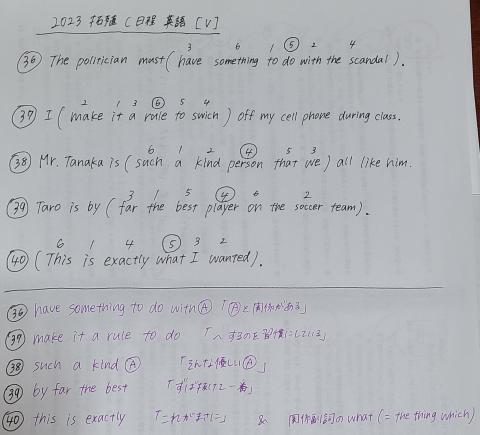 2023 拓殖 C日程 英語 [V]
3 6 1 ⑤ 2 4
㊱ The politician must ( have something to do with the scandal ).
2 1 3 ⑥ 5 4
㊲ I ( make it a rule to swich ) off my cell phone during class.
6 1 2 ④ 5 3
㊳ Mr. Tanaka is ( such a kind person that we ) all like him.
3 1 5 ④ 6 2
㊴ Taro is by ( far the best player on the soccer team ).
6 1 4 ⑤ 3 2
㊵ ( This is exactly what I wanted ).
㊱ have something to do with Ⓐ 「Ⓐと関係がある」
㊲ make it a rule to do 「〜するのを習慣にしている」
㊳ such a kind Ⓐ 「そんな優しいⒶ」
㊴ by far the best 「ずば抜けて一番」
㊵ this is exactly 「これがまさに」 & 関係副詞の what (= the thing which)